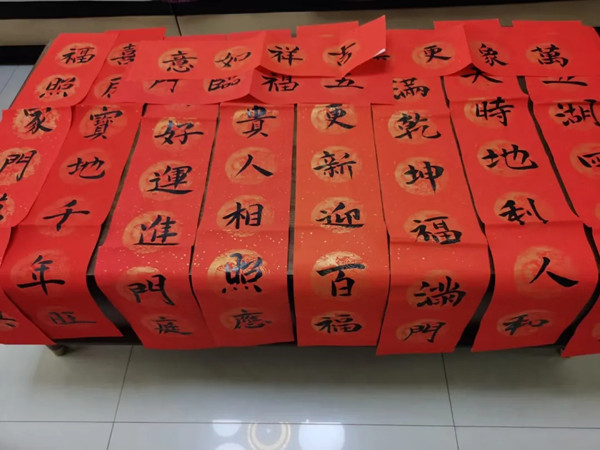 萬象更
吉祥如意
五福臨門
五湖四
天時地利人和
滿乾坤福滿門
更新迎百福
貴人相照應
好運進門庭
喜居寶地千年旺
福照家門